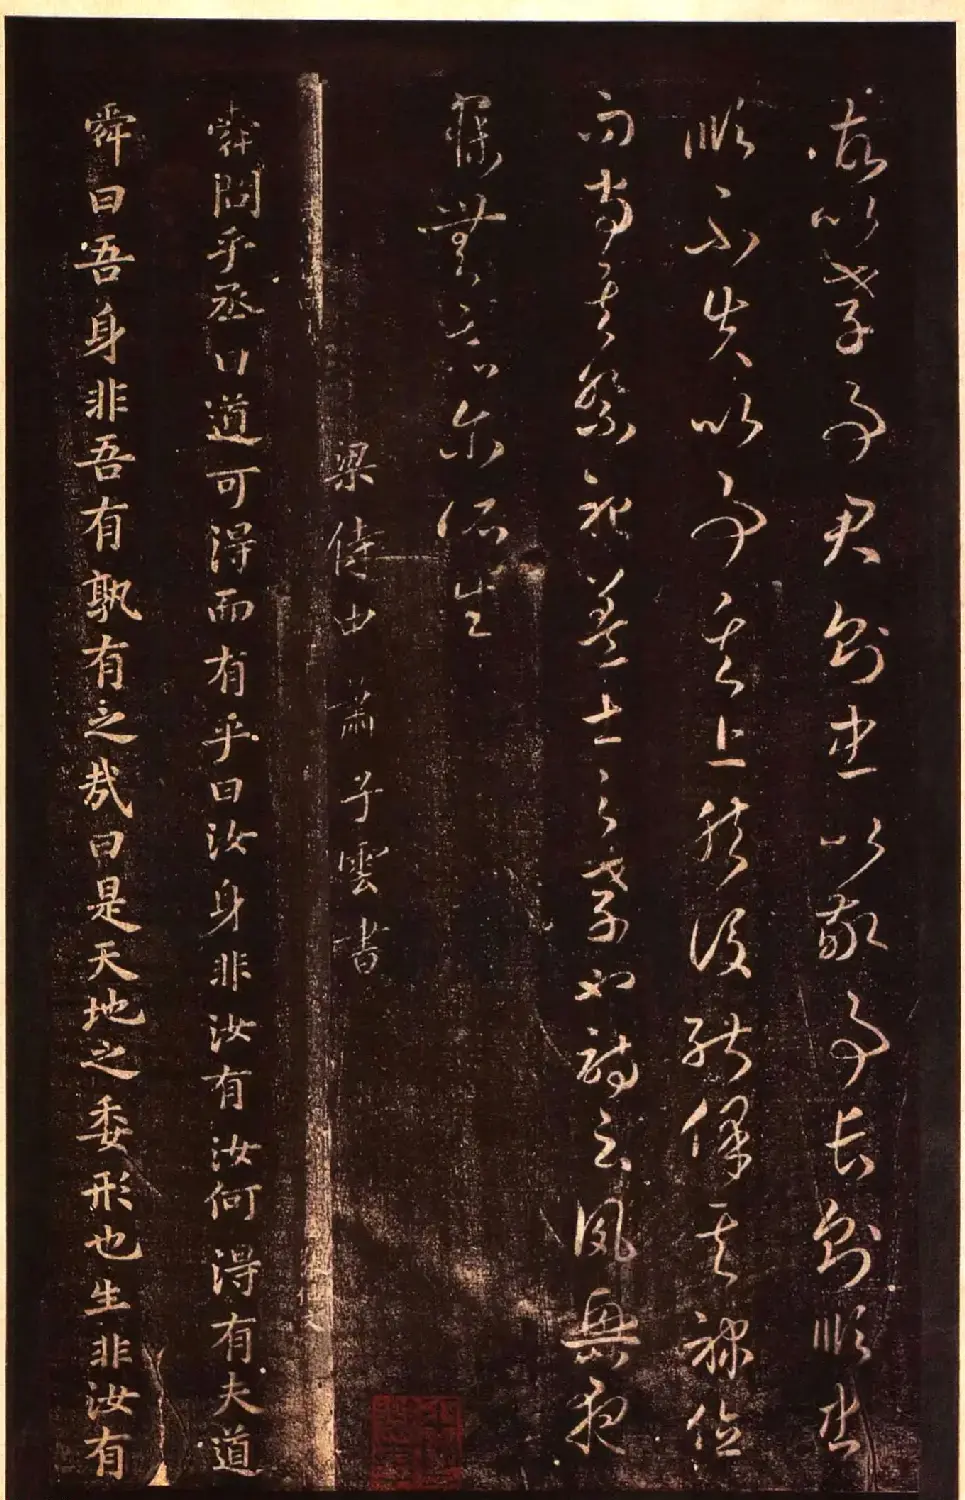 故以孝事君則忠以敬事長則順忠
順不失以事其上然後能保其祿位
而守其祭祀蓋士之孝也詩云夙興夜
寐無忝尔所生
梁侍中蕭子雲書
舜問乎丞曰道可得而有乎曰汝身非汝有汝何得有夫道
舜曰吾身非吾有孰有之哉曰是天地之委形也生非汝有